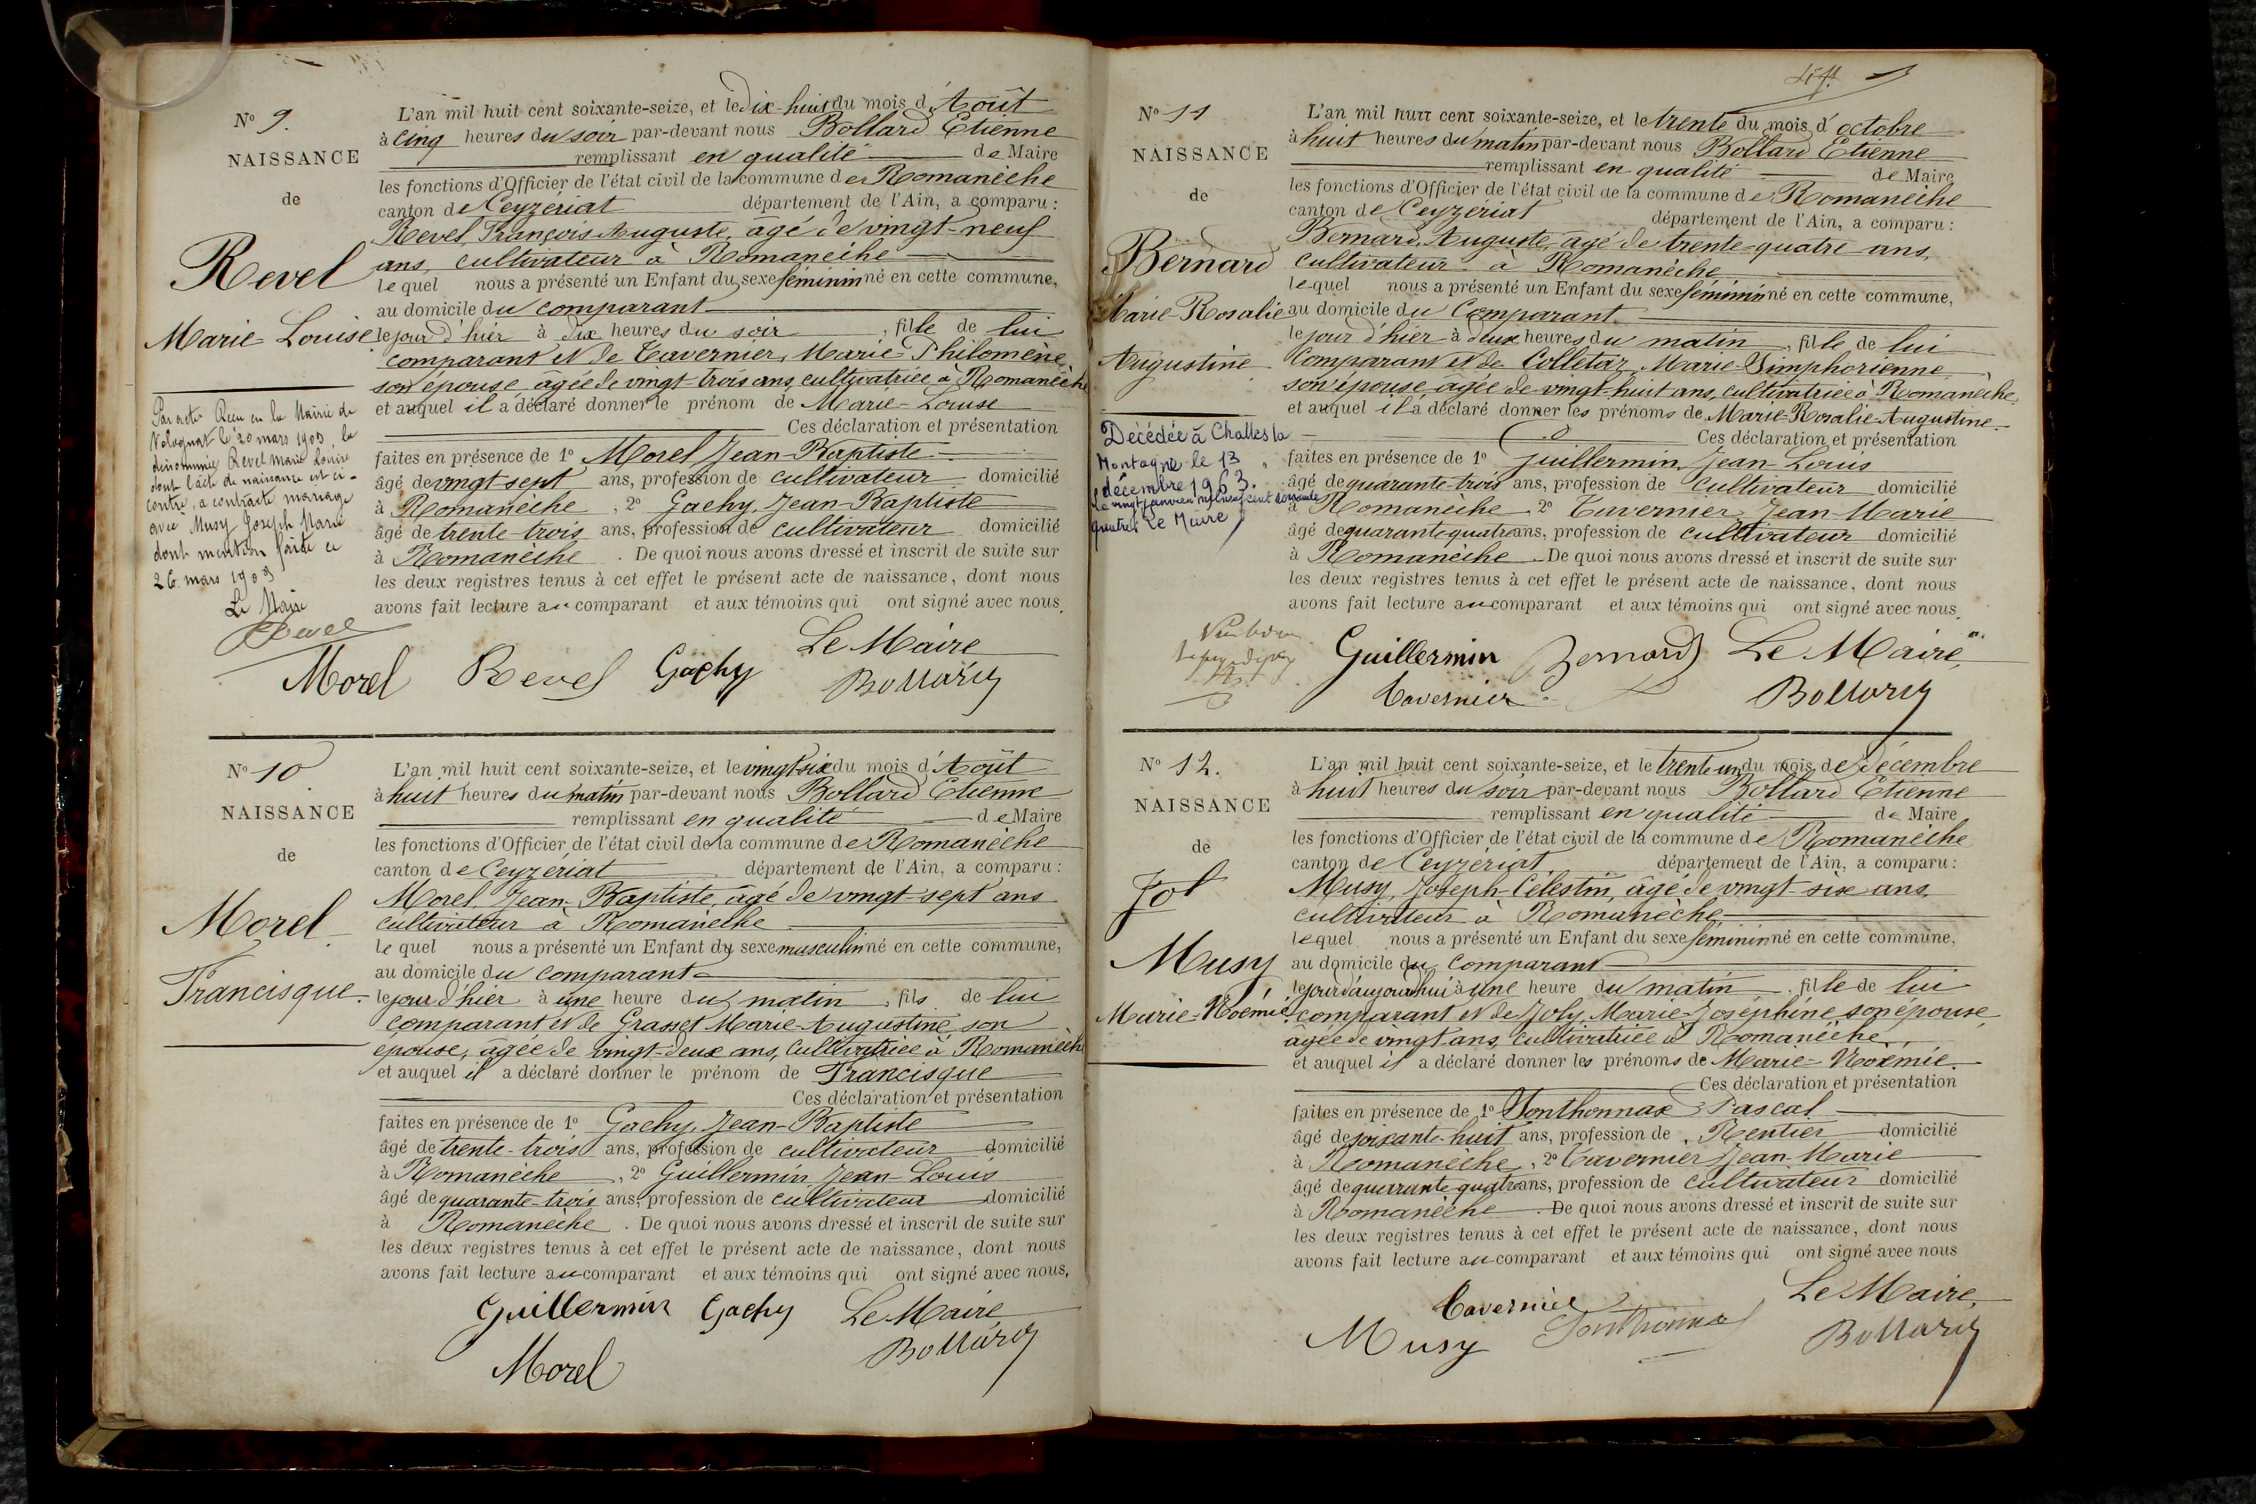 N° 9.
NAISSANCE
de
Revel
Marie-Louise
Par acte Reçu en la Mairie de
le 20 mars 1909, la
dénommée Revel Marie Louise
dont l'acte de naissance est ci-
contre, a contracté mariage
avec Musy Joseph Marie
dont mention faite ce
26 mars 1909
Le Maire
Revel
L'an mil huit cent soixante-seize, et le dix-huit du mois d'Août
à cinq heures du soir par-devant nous Bollard Etienne
remplissant en qualité de Maire
les fonctions d'Officier de l'état civil de la commune de Romanèche
canton de Ceyzériat département de l'Ain, a comparu :
Revel, François Auguste, âgé de vingt-neuf
ans, cultivateur à Romanèche
lequel nous a présenté un Enfant du sexe féminin né en cette commune,
au domicile du comparant
le jour d'hier à dix heures du soir, fille de lui
comparant et de Tavernier, Marie-Philomène
son épouse âgée de vingt-trois ans, cultivatrice à Romanèche
et auquel il a déclaré donner le prénom de Marie-Louise
Ces déclaration et présentation
faites en présence de 1° Morel Jean-Baptiste
âgé de vingt-sept ans, profession de cultivateur domicilié
à Romanèche, 2° Gachy, Jean-Baptiste
âgé de trente-trois ans, profession de cultivateur domicilié
à Romanèche. De quoi nous avons dressé et inscrit de suite sur
les deux registres tenus à cet effet le présent acte de naissance, dont nous
avons fait lecture au comparant et aux témoins qui ont signé avec nous.
Le Maire
Morel Revel Gachy Bollard
N° 10
NAISSANCE
de
Morel
Francisque.
L'an mil huit cent soixante-seize, et le vingt-six du mois d'Août
à huit heures du matin par-devant nous Bollard Etienne
remplissant en qualité de Maire
les fonctions d'Officier de l'état civil de la commune de Romanèche
canton de Ceyzériat département de l'Ain, a comparu :
Morel, Jean-Baptiste, âgé de vingt-sept ans
cultivateur à Romanèche
lequel nous a présenté un Enfant du sexe masculin né en cette commune,
au domicile du comparant
le jour d'hier à une heure du matin, fils de lui
comparant et de Grasset Marie-Augustine son
épouse, âgée de vingt-deux ans, cultivatrice à Romanèche
et auquel il a déclaré donner le prénom de Francisque
Ces déclaration et présentation
faites en présence de 1° Gachy, Jean-Baptiste
âgé de trente-trois ans, profession de cultivateur domicilié
à Romanèche, 2° Guillermin Jean-Louis
âgé de quarante-trois ans, profession de cultivateur domicilié
à Romanèche. De quoi nous avons dressé et inscrit de suite sur
les deux registres tenus à cet effet le présent acte de naissance, dont nous
avons fait lecture au comparant et aux témoins qui ont signé avec nous.
Guillermin Gachy Le Maire
Morel Bollard
N° 11
NAISSANCE
de
Bernard
Marie-Rosalie
Augustine
Décédée à Challes la
Montagne le 13
décembre 1963.
Le vingt janvier mil neuf cent soixante
quatre Le Maire
L'an mil huit cent soixante-seize, et le trente du mois d'octobre
à huit heures du matin par-devant nous Bollard Etienne
remplissant en qualité de Maire
les fonctions d'Officier de l'état civil de la commune de Romanèche
canton de Ceyzériat département de l'Ain, a comparu :
Bernard, Auguste, âgé de trente-quatre ans,
cultivateur à Romanèche
lequel nous a présenté un Enfant du sexe féminin né en cette commune,
au domicile du Comparant
le jour d'hier à deux heures du matin, fille de lui
Comparant et de Colletaz Marie-Simphorienne
son épouse âgée de vingt-huit ans, cultivatrice à Romanèche,
et auquel il a déclaré donner les prénoms de Marie-Rosalie-Augustine.
Ces déclaration et présentation
faites en présence de 1° Guillermin, Jean-Louis
âgé de quarante-trois ans, profession de cultivateur domicilié
à Romanèche, 2° Tavernier Jean-Marie
âgé de quarante quatre ans, profession de cultivateur domicilié
à Romanèche. De quoi nous avons dressé et inscrit de suite sur
les deux registres tenus à cet effet le présent acte de naissance, dont nous
avons fait lecture au comparant et aux témoins qui ont signé avec nous.
Guillermin Bernard Le Maire,
Tavernier Bollard
N° 12.
NAISSANCE
de
Jol
Musy
Marie-Noémie.
L'an mil huit cent soixante-seize, et le trente un du mois de décembre
à huit heures du soir par-devant nous Bollard Etienne
remplissant en qualité de Maire
les fonctions d'Officier de l'état civil de la commune de Romanèche
canton de Ceyzériat département de l'Ain, a comparu :
Musy, Joseph-Célestin, âgé de vingt-six ans,
cultivateur à Romanèche
lequel nous a présenté un Enfant du sexe féminin né en cette commune,
au domicile du comparant
le jour d'aujourd'hui à une heure du matin, fille de lui
comparant et de Joly, Marie-Joséphine son épouse
âgée de vingt ans, cultivatrice à Romanèche,
et auquel il a déclaré donner les prénoms de Marie-Noémie.
Ces déclaration et présentation
faites en présence de 1° Sonthonnax Pascal
âgé de soixante-huit ans, profession de Rentier domicilié
à Romanèche, 2° Tavernier Jean-Marie
âgé de quarante quatre ans, profession de cultivateur domicilié
à Romanèche. De quoi nous avons dressé et inscrit de suite sur
les deux registres tenus à cet effet le présent acte de naissance, dont nous
avons fait lecture au comparant et aux témoins qui ont signé avec nous
Tavernier Le Maire,
Musy Sonthonnax Bollard